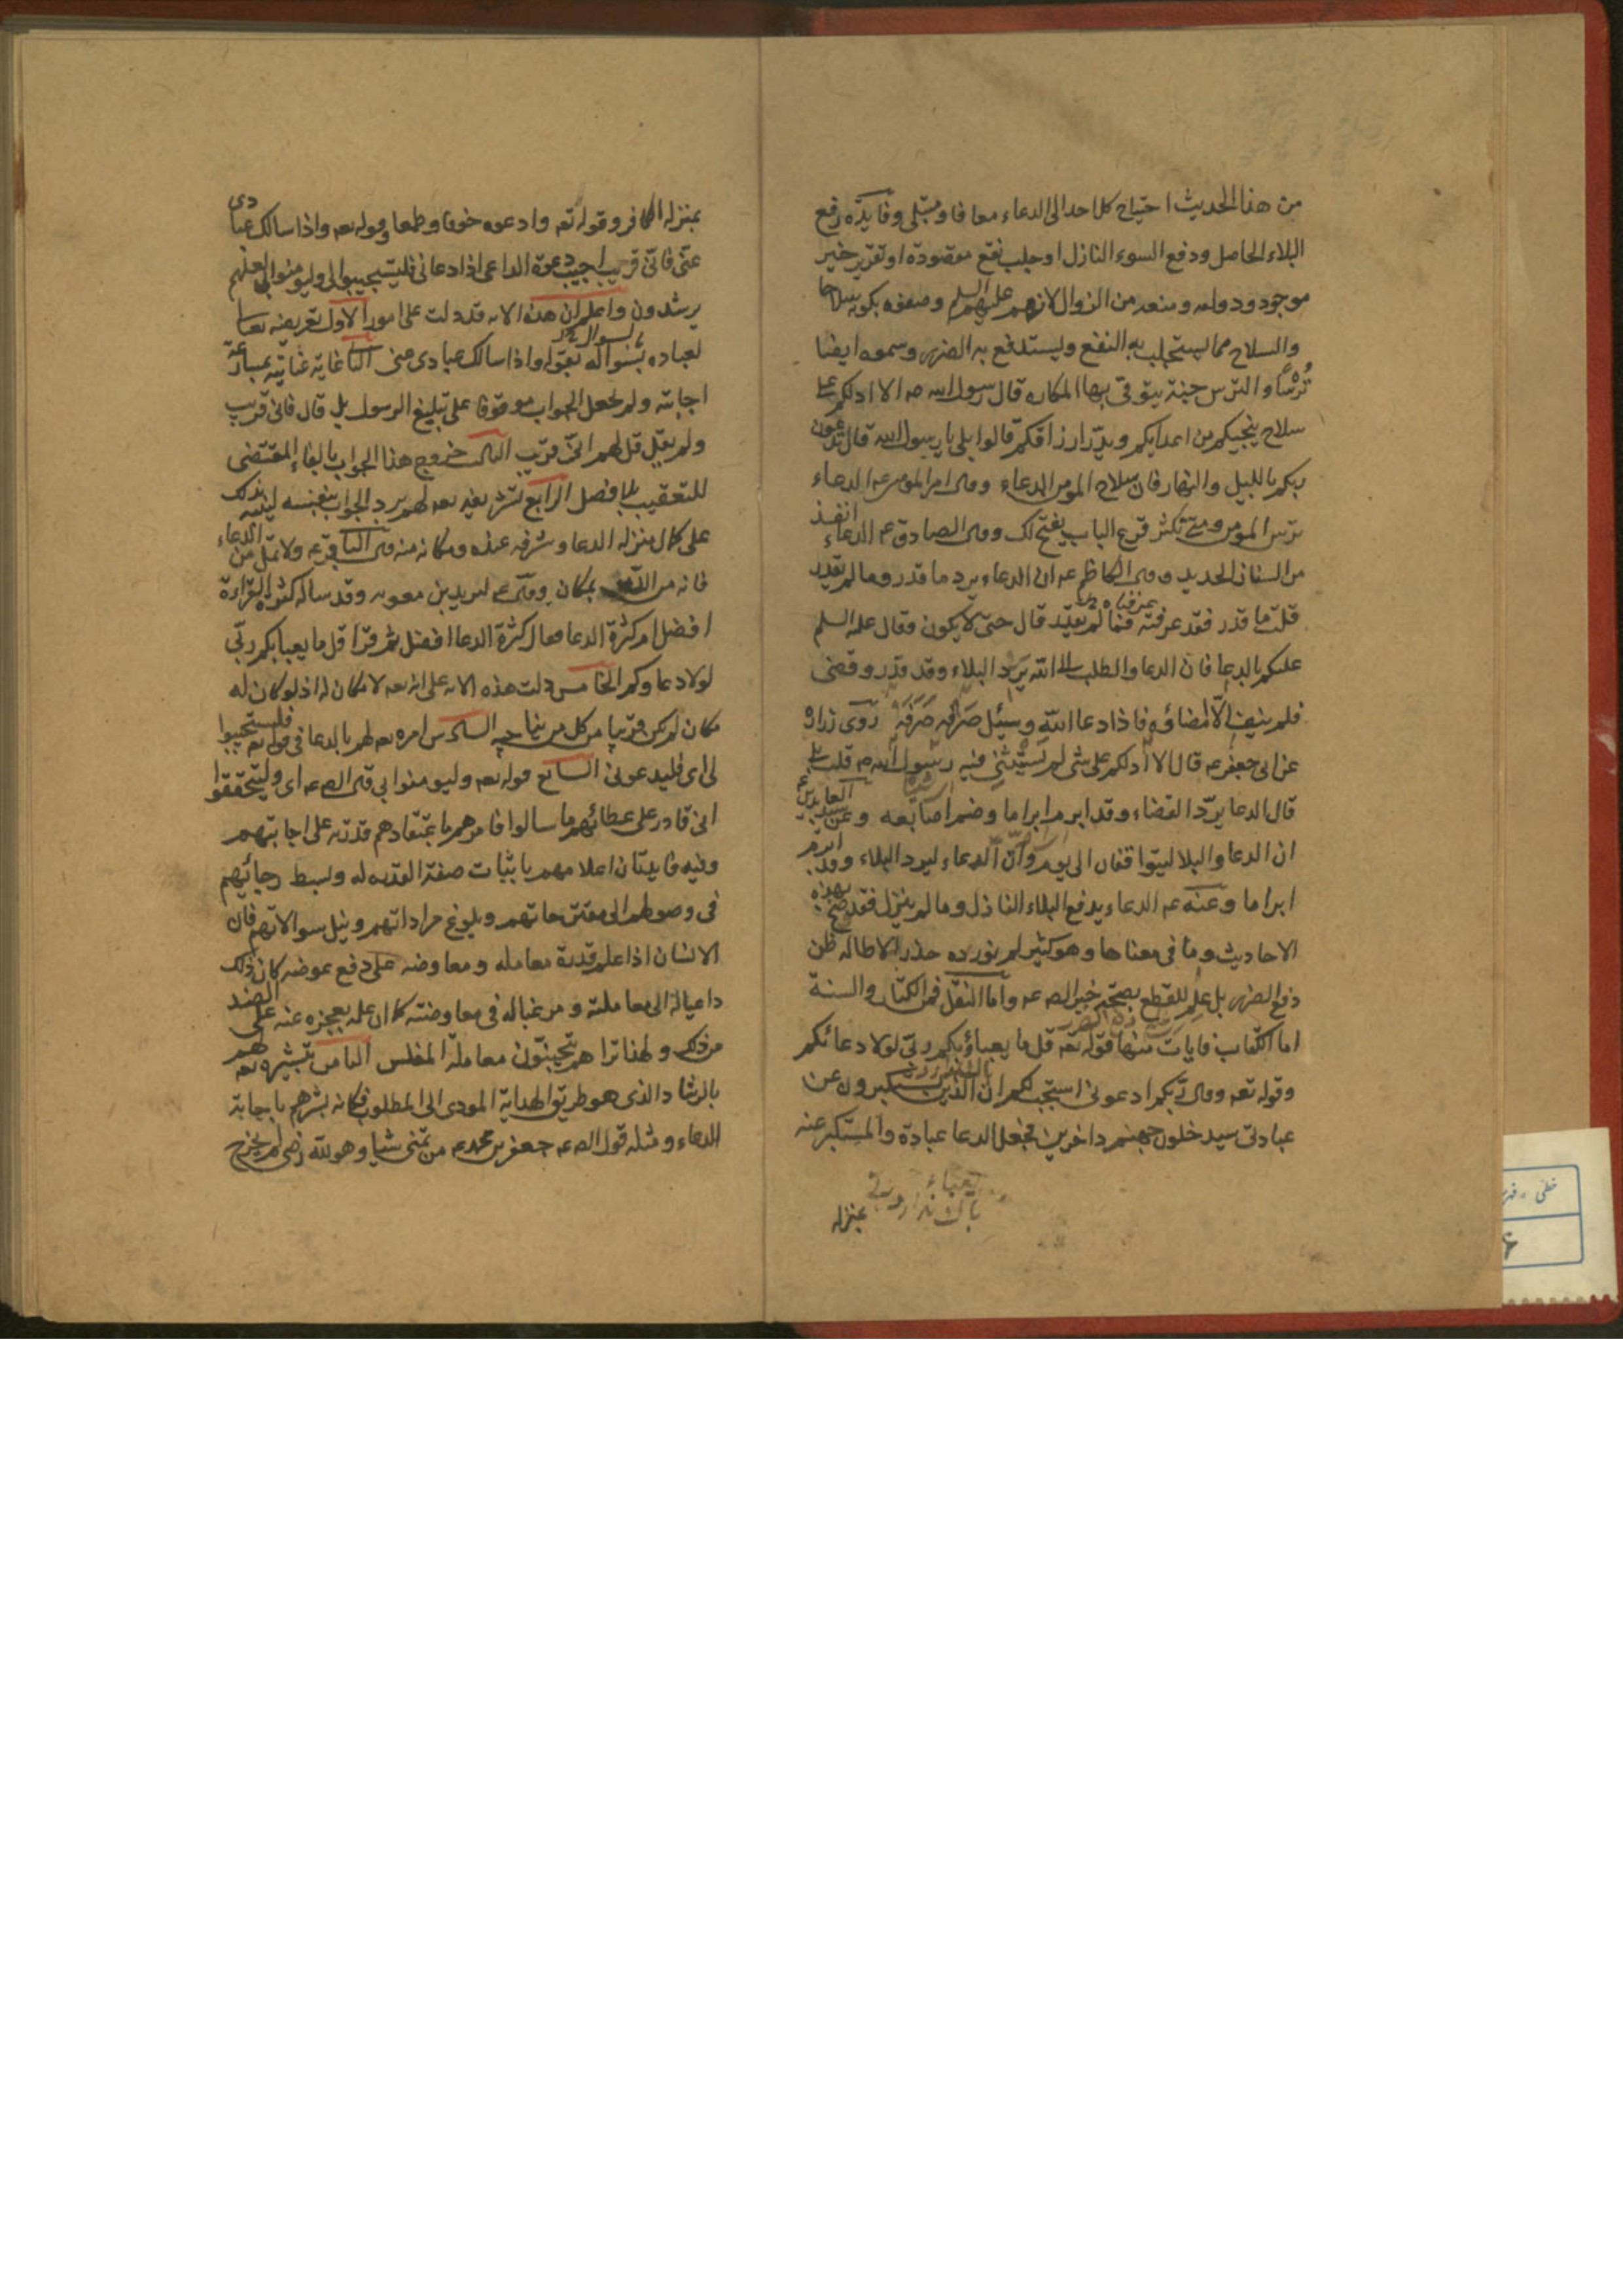 من هذا الحديث احتياج كل احد الى الدعاء معافا و مبتلى وفايدته رفع
البلاء الحاصل ودفع السوء النازل او جلب نفع مقصود او تقرير خير
موجود ودوامه ومنعه من الزوال لانهم عليهم السلم وصفوه بكونه سلاحا
والسلاح مما يستجلب به النفع ويستدفع به الضرر وسموه ايضا
تُرسًا والترس جنة يتوقى بها المكاره قال رسول الله ص الا ادلكم على
سلاح ينجيكم من اعدايكم ويدرّ ارزاقكم قالوا بلى يا رسول الله قال تدعون
ربكم بالليل والنهار فان سلاح المومن الدعاء وقال امير المومنين ع الدعاء
ترس المومن ومتى تكثر قرع الباب يفتح لك وقال الصادق ع الدعاء انفذ
من السنان الحديد وقال الكاظم ع ان الدعاء يرد ما قدر وما لم يقدر
قلت ما قدر فقد عرفته فما لم يقدر قال حتى لا يكون وقال عليه السلم
عليكم بالدعا فان الدعا والطلب الى الله يَرد البلاء وقد قدر وقضى
فلم يبق الّا امضاؤه فاذا دعا الله وسُئل صَرْفه صَرَفَهُ رَوى زراره
عن ابي جعفر ع قال الا ادلكم على شى لم يَستَثنِ فيه رسول الله ص قلت بلى
قال الدعا يردّ القضاء وقد ابرم ابراما وضم اصابعه وعن سيد العابدين ع
ان الدعا والبلا ليتوافقان الى يوم وانّ الدعاء ليرد البلاء وقد ابرم
ابراما وعنه ع الدعاء يدفع البلاء النازل وما لم ينزل فقد صح بهذه
الاحاديث وما في معناها وهو كثير لم نورده حذر الاطاله ظن
دفع الضرر بل عِلم للقطع بصحة خبر الص ع واما النقل فمن الكتاب والسنة
اما الكتاب فايات منها قوله تع قل ما يعباؤ بكم ربّي لولا دعائكم
وقوله تع وقال ربّكم ادعوني استجب لكم ان الذين يستكبرون عن
عبادتي سيدخلون جهنم داخرين فجعل الدعا عبادة والمستكبر عنه
بمنزله
بمنزله الكافر وقوله تع وادعوه خوفا وطمعا وقوله تع واذا سالك عبادى
عنّى فانّى قريب اجيب دعوة الداعى اذا دعانى فليستجيبوا لى وليومنوا بى لعلهم
يرشدون واعلم ان هذه الايه قد دلت على امور الاول تعريضه تعالى
لعباده بسواله بقوله واذا سالك عبادى عنى الثا غاية عنايته بمسارعة
اجابته ولم يجعل الجواب موقوفا على تبليغ الرسول بل قال فانى قريب
ولم يقل قل لهم انّى قريب الثالث خروج هذا الجواب بالفاء المقتضى
للتعقيب بلا فصل الرابع تشريفه تع لهم برد الجواب بنفسه لينبه بذلك
على كمال منزله الدعا وشرفه عنده ومكانه منه قال الباقر ع ولا تملّ من الدعاء
فانه من الله بمكان وقال ع لبريد بن معويه وقد ساله كثرة القراءة
افضل ام كثرة الدعا فقال كثرة الدعا افضل ثم قرا قل ما يعبا بكم ربّي
لولا دعاوكم الخامس دلت هذه الايه على انه تع لا مكان له اذ لو كان له
مكان لم يكن قريبا من كل من يناجيه السادس امره تع لهم بالدعا فى قوله تع فليستجيبوا
لى اى فليدعونى السابع قوله تع وليومنوا بى قال الص ع اى وليتحققوا
انى قادر على عطائهم ما سالوا فامرهم باعتقادهم قدرته على اجابتهم
وفيه فايدتان اعلامهم باثبات صفة القدره له وبسط رجائهم
فى وصولهم الى مقترحاتهم وبلوغ مراداتهم ونيل سوالاتهم فان
الانسان اذا علم قدرة معامله ومعاوضه على دفع عوضه كان ذلك
داعيا له الى معاملته ومرغبا له فى معاوضته كما ان علمه بعجزه عنه على الضد
من ذلك ولهذا تراهم يجتنبون معاملة المفلس الثامن تبشيره تع لهم
بالرشاد الذى هو طريق الهداية المودى الى المطلوب فكانه بشرهم باجابة
الدعاء ومثله قول الص ع جعفر بن محمد ع من تمنى شيا وهو لله رضى لم يخرج